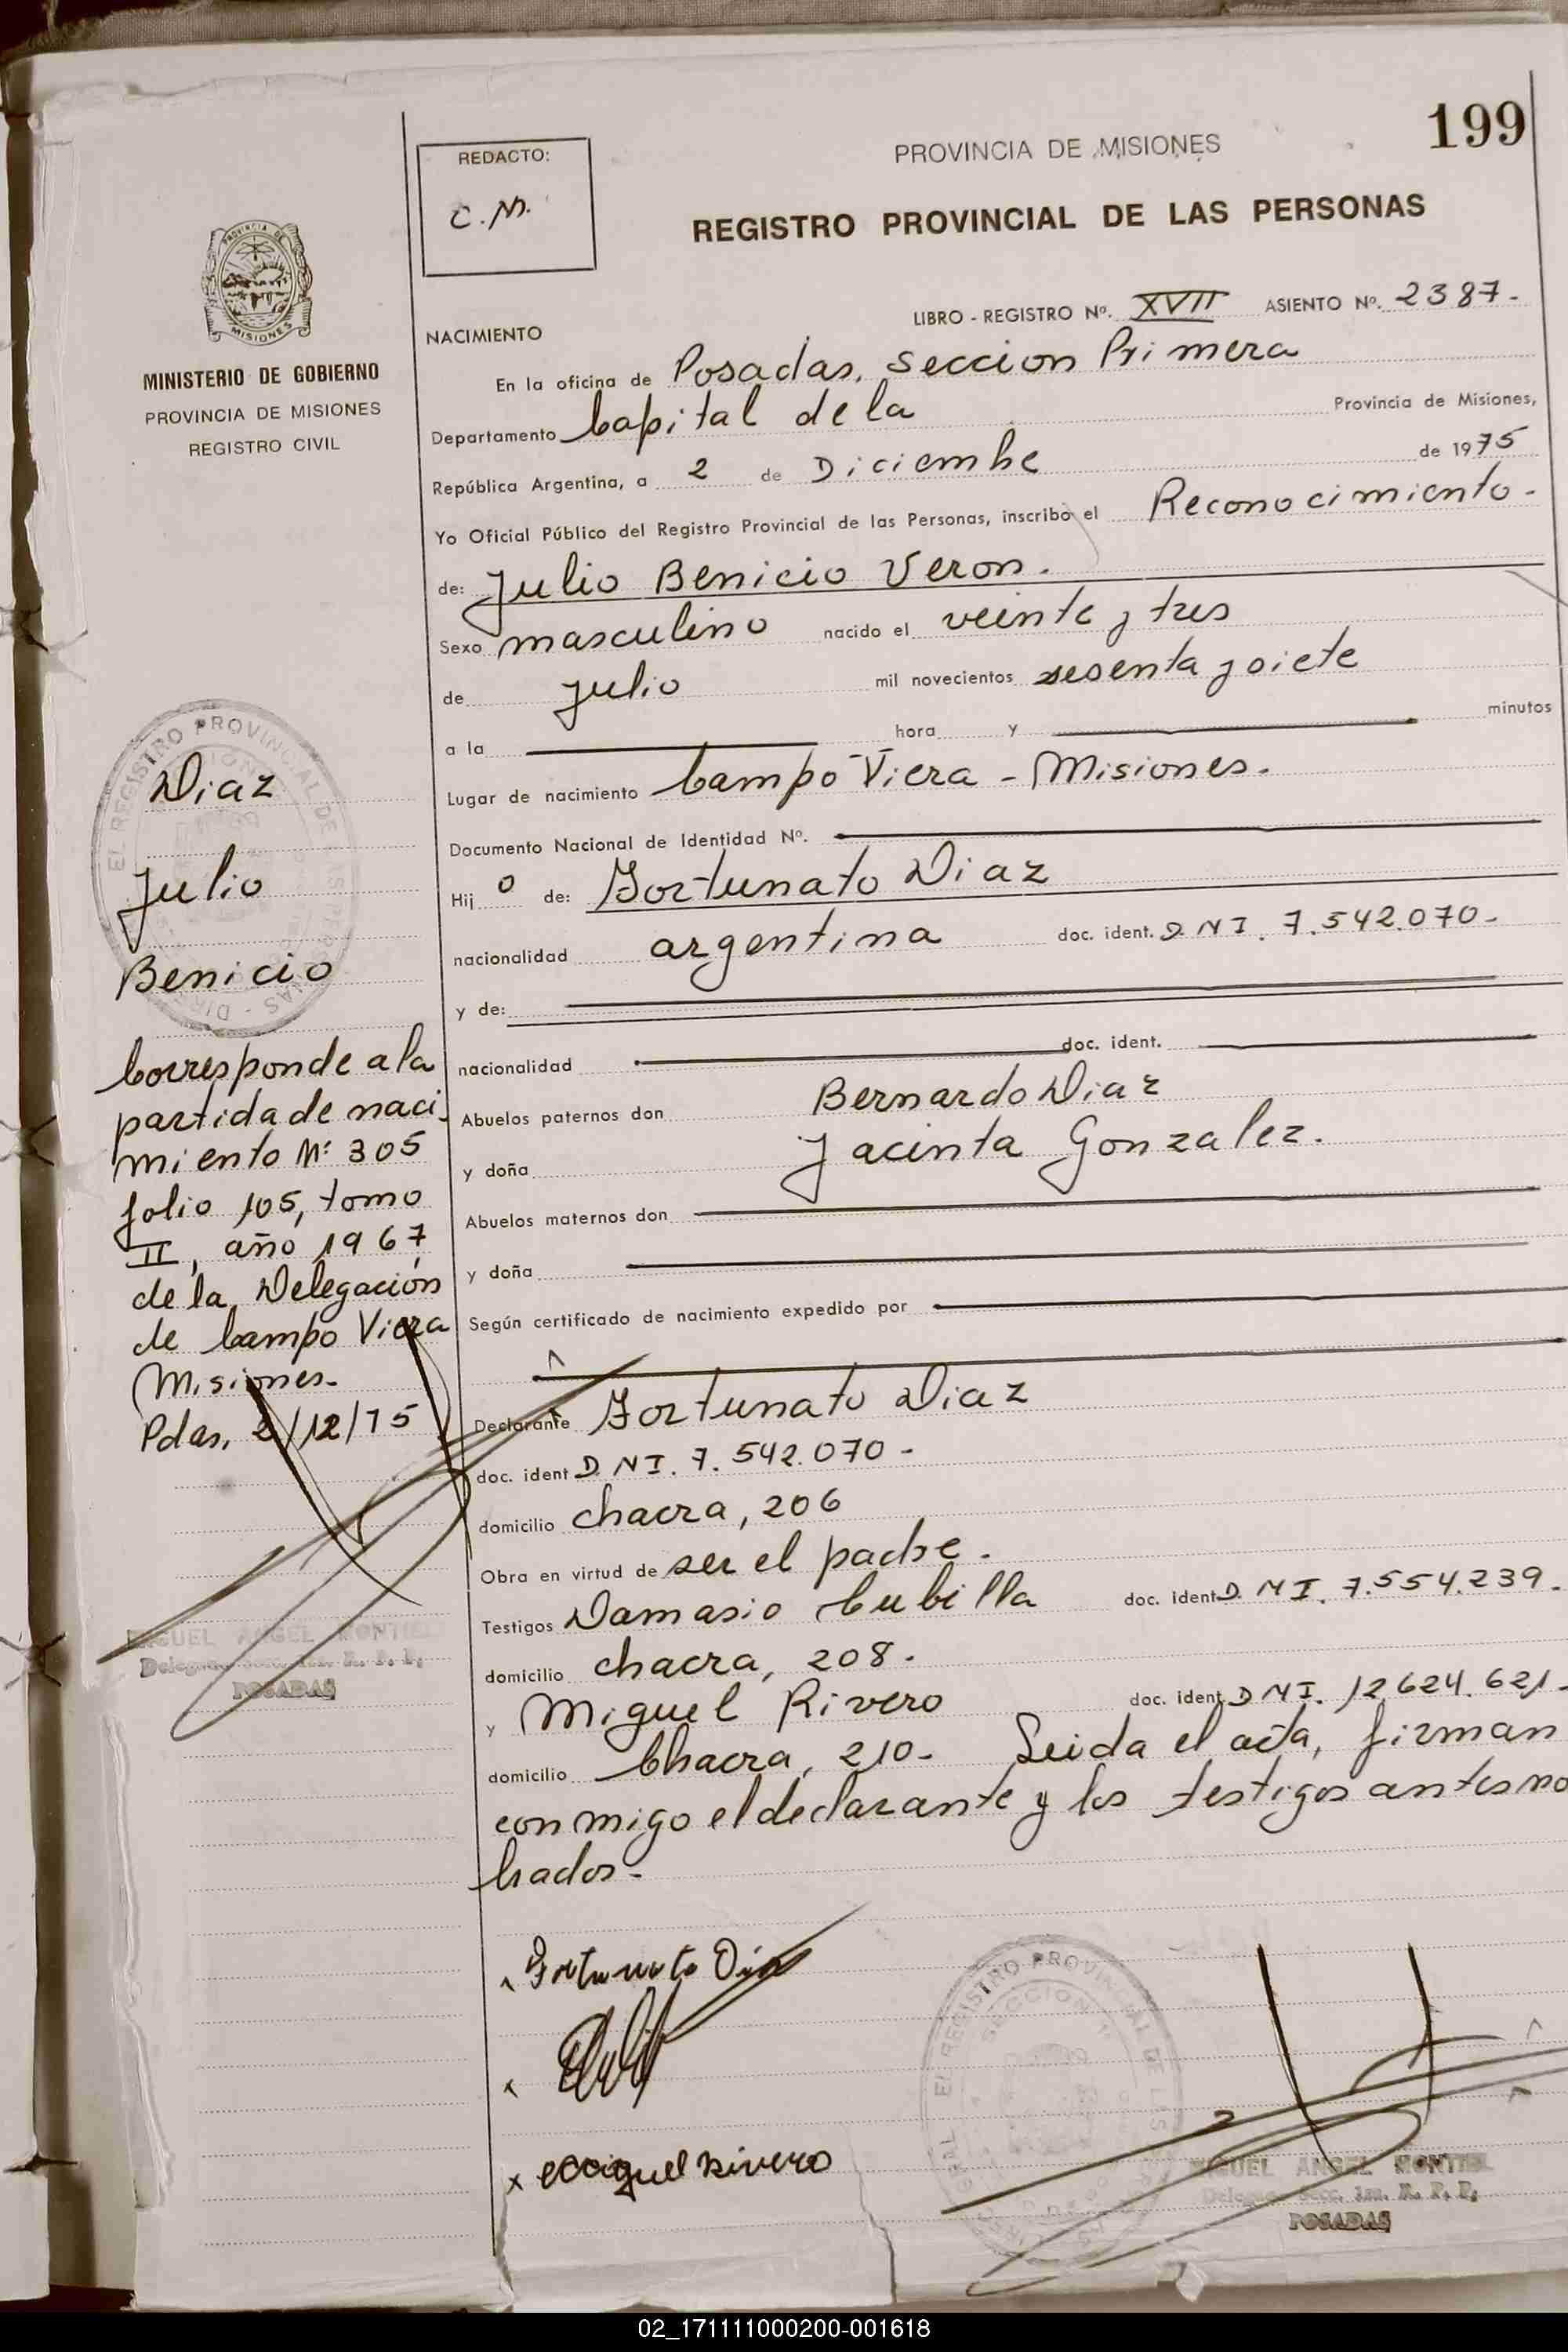 199
REDACTO:
C. M.
PROVINCIA DE MISIONES
REGISTRO PROVINCIAL DE LAS PERSONAS
LIBRO - REGISTRO Nº. XVII ASIENTO Nº. 2387-
NACIMIENTO
En la oficina de Posadas, Seccion Primera
Departamento Capital de la Provincia de Misiones,
República Argentina, a 2 de Diciembre de 1975
Yo Oficial Público del Registro Provincial de las Personas, inscribo el Reconocimiento-
de: Julio Benicio Veron.
Sexo masculino nacido el veinte y tres
de Julio mil novecientos sesenta y siete
a la hora y minutos
Lugar de nacimiento Campo Viera - Misiones.
Documento Nacional de Identidad Nº.
Hij o de: Fortunato Diaz
nacionalidad argentina doc. ident. D N I. 7.542.070-
y de:
nacionalidad doc. ident.
Abuelos paternos don Bernardo Diaz
y doña Jacinta Gonzalez.
Abuelos maternos don
y doña
Según certificado de nacimiento expedido por
Declarante Fortunato Diaz
doc. ident D. N I. 7. 542.070-
domicilio chacra, 206
Obra en virtud de ser el padre.
Testigos Damasio Cubilla doc. ident D. N I. 7.554.239.
domicilio chacra, 208.
y Miguel Rivero doc. ident D N I. 12.624.621-
domicilio Chacra, 210- Leida el acta, firman
conmigo el declarante y los testigos antesno
brados-
Fortunato Diaz
x
x Miguel Rivero
EL REGISTRO PROVINCIAL DE LAS
SECCION 1ª
MIGUEL ANGEL MONTIEL
Delegado Secc. 1ra. R. P. P.
POSADAS
PROVINCIA DE
MISIONES
MINISTERIO DE GOBIERNO
PROVINCIA DE MISIONES
REGISTRO CIVIL
EL REGISTRO PROVINCIAL DE LAS PERSONAS
Diaz
Julio
Benicio
Corresponde a la
partida de naci-
miento Nº 305
folio 105, tomo
II, año 1967
de la Delegación
de Campo Viera
Misiones-
Pdas, 2/12/75
MIGUEL ANGEL MONTIEL
Delegado Secc. 1ra. R. P. P.
POSADAS
02_171111000200-001618